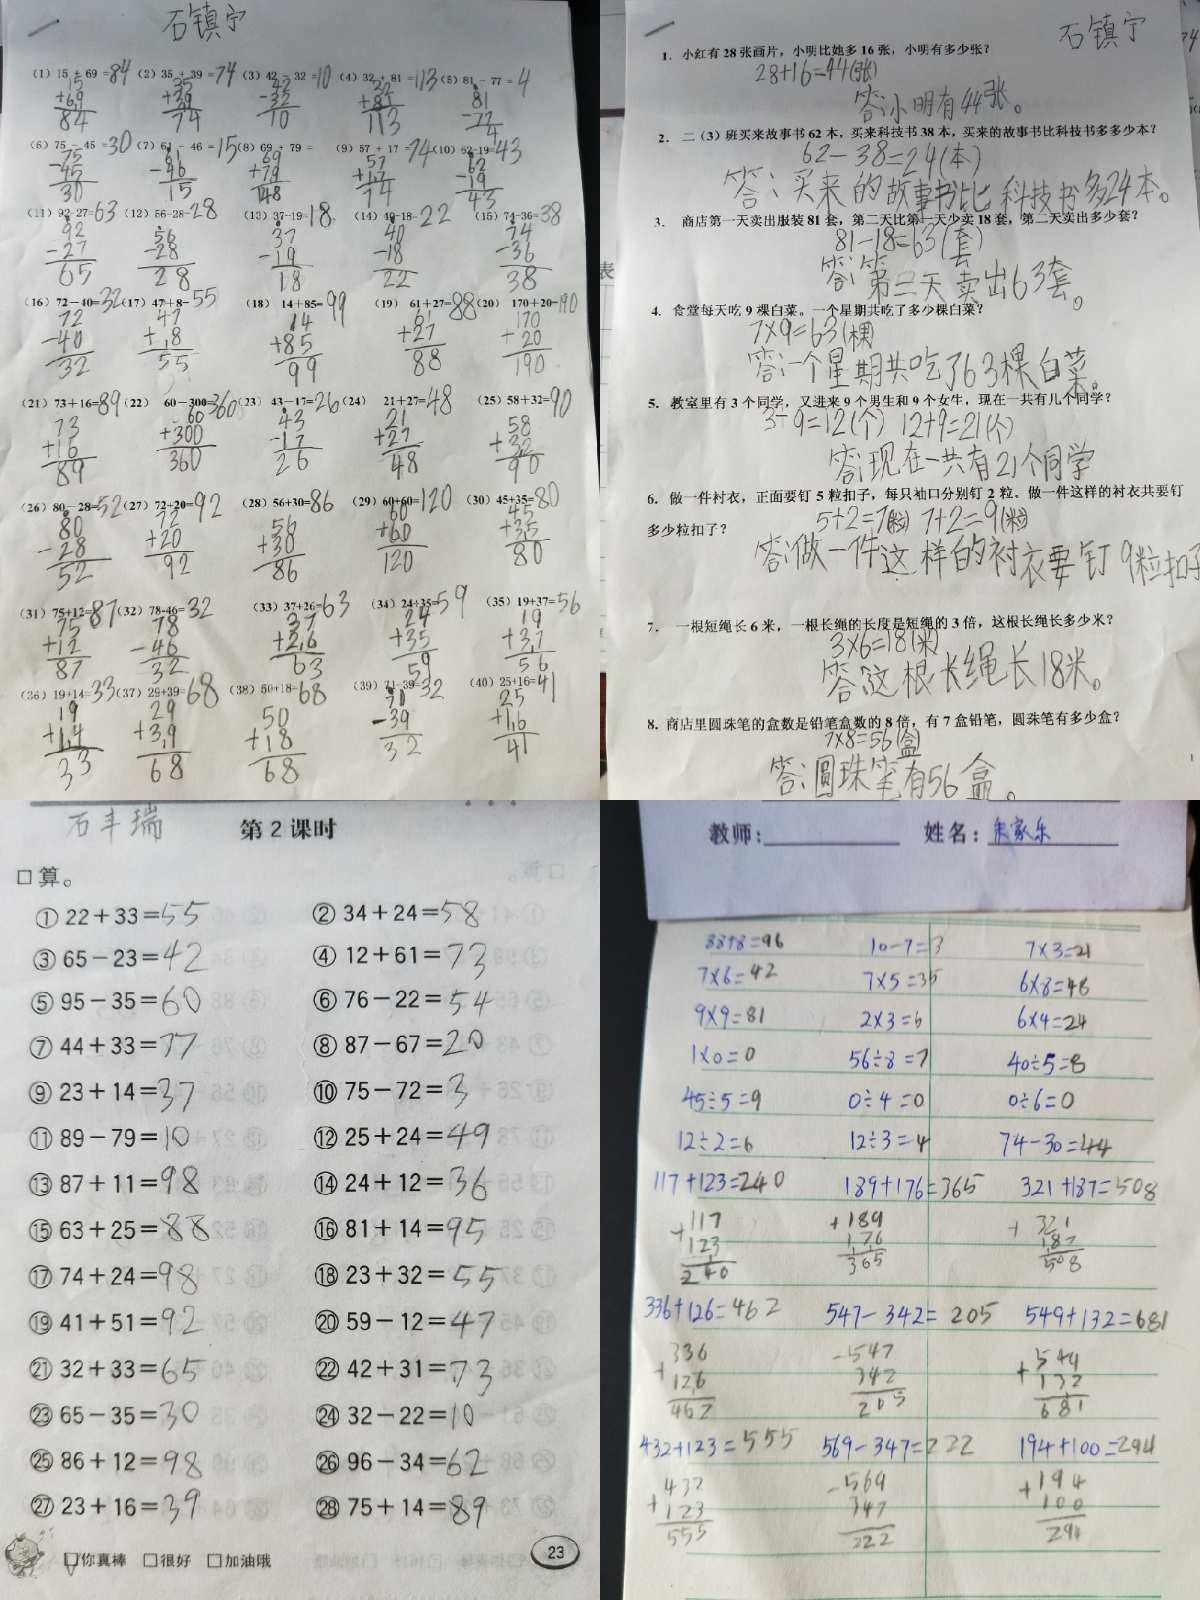 石镇宁
(1) 15 + 69 =84 (2) 35 + 39 =74 (3) 42 - 32 =10 (4) 32 + 81 =113 (5) 81 - 77 = 4
15 35 42 32 81
+69 +39 -32 +81
84 74 10 113 4
(6) 75 - 45 =30 (7) 61 - 46 =15 (8) 69 + 79 = (9) 57 + 17 =74 (10) 62-19=43
75 61 69 57 62
-45 -46 +79 +17 -19
30 15 148 74 43
(11) 92-27=63 (12) 56-28=28 (13) 37-19=18 (14) 40-18=22 (15) 74-36=38
92 56 37 40 74
-27 -28 -19 -18 -36
65 28 18 22 38
(16) 72-40=32 (17) 47+8=55 (18) 14+85=99 (19) 61+27=88 (20) 170+20=190
72 47 14 61 170
-40 +8 +85 +27 +20
32 55 99 88 190
(21) 73+16=89 (22) 60-300=360 (23) 43-17=26 (24) 21+27=48 (25) 58+32=90
73 60 43 21 58
+16 +300 -17 +27 +32
89 360 26 48 90
(26) 80-28=52 (27) 72+20=92 (28) 56+30=86 (29) 60+60=120 (30) 45+35=80
80 72 56 60 45
-28 +20 +30 +60 +35
52 92 86 120 80
(31) 75+12=87 (32) 78-46=32 (33) 37+26=63 (34) 24+35=59 (35) 19+37=56
75 78 37 24 19
+12 -46 +26 +35 +37
87 32 63 59 56
(36) 19+14=33 (37) 29+39=68 (38) 50+18=68 (39) 71-39=32 (40) 25+16=41
19 29 50 25
+14 +39 +18 -39 +16
33 68 68 32 41
石镇宁
1. 小红有 28 张画片，小明比她多 16 张，小明有多少张？
28+16=44(张)
答:小明有44张。
2. 二（3）班买来故事书 62 本，买来科技书 38 本，买来的故事书比科技书多多少本？
62-38=24(本)
答:买来的故事书比科技书多24本。
3. 商店第一天卖出服装 81 套，第二天比第一天少卖 18 套，第二天卖出多少套？
81-18=63(套)
答:第二天卖出63套。
4. 食堂每天吃 9 棵白菜。一个星期共吃了多少棵白菜？
7×9=63(棵)
答:一个星期共吃了63棵白菜。
5. 教室里有 3 个同学，又进来 9 个男生和 9 个女生，现在一共有几个同学？
3+9=12(个) 12+9=21(个)
答:现在一共有21个同学
6. 做一件衬衣，正面要钉 5 粒扣子，每只袖口分别钉 2 粒。做一件这样的衬衣共要钉
多少粒扣子？
5+2=7(粒) 7+2=9(粒)
答:做一件这样的衬衣要钉9粒扣子
7. 一根短绳长 6 米，一根长绳的长度是短绳的 3 倍，这根长绳长多少米？
3×6=18(米)
答:这根长绳长18米。
8. 商店里圆珠笔的盒数是铅笔盒数的 8 倍，有 7 盒铅笔，圆珠笔有多少盒？
7×8=56(盒)
答:圆珠笔有56盒。
石丰瑞
第 2 课时
口算。
① 22+33=55 ② 34+24=58
③ 65-23=42 ④ 12+61=73
⑤ 95-35=60 ⑥ 76-22=54
⑦ 44+33=77 ⑧ 87-67=20
⑨ 23+14=37 ⑩ 75-72=3
⑪ 89-79=10 ⑫ 25+24=49
⑬ 87+11=98 ⑭ 24+12=36
⑮ 63+25=88 ⑯ 81+14=95
⑰ 74+24=98 ⑱ 23+32=55
⑲ 41+51=92 ⑳ 59-12=47
㉑ 32+33=65 ㉒ 42+31=73
㉓ 65-35=30 ㉔ 32-22=10
㉕ 86+12=98 ㉖ 96-34=62
㉗ 23+16=39 ㉘ 75+14=89
□你真棒 □很好 □加油哦
23
教师: 姓名: 朱家乐
88+8=96 10-7=3 7×3=21
7×6=42 7×5=35 6×8=48
9×9=81 2×3=6 6×4=24
1×0=0 56÷8=7 40÷5=8
45÷5=9 0÷4=0 0÷6=0
12÷2=6 12÷3=4 74-30=44
117+123=240 189+176=365 321+187=508
117 189 321
+123 +176 +187
240 365 508
336+126=462 547-342=205 549+132=681
336 547 549
+126 -342 +132
462 205 681
432+123=555 569-347=222 194+100=294
432 569 194
+123 -347 +100
555 222 294